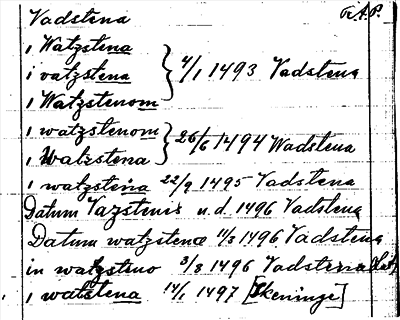 Vadstena
i Watzstena
i vatzstena 4/1 1493 Vadstena
i Watzstenom
i watzstenom
i Watzstena 26/6 1494 Wadstena
i watzstena 22/9 1495 Vadstena
Datum Vazstenis u.d. 1496 Vadstena
Datum watzstene 11/3 1496 Vadstena
in watzstino 3/8 1496 Vadstena
i watstena 14/1 1497 [Skeninge]